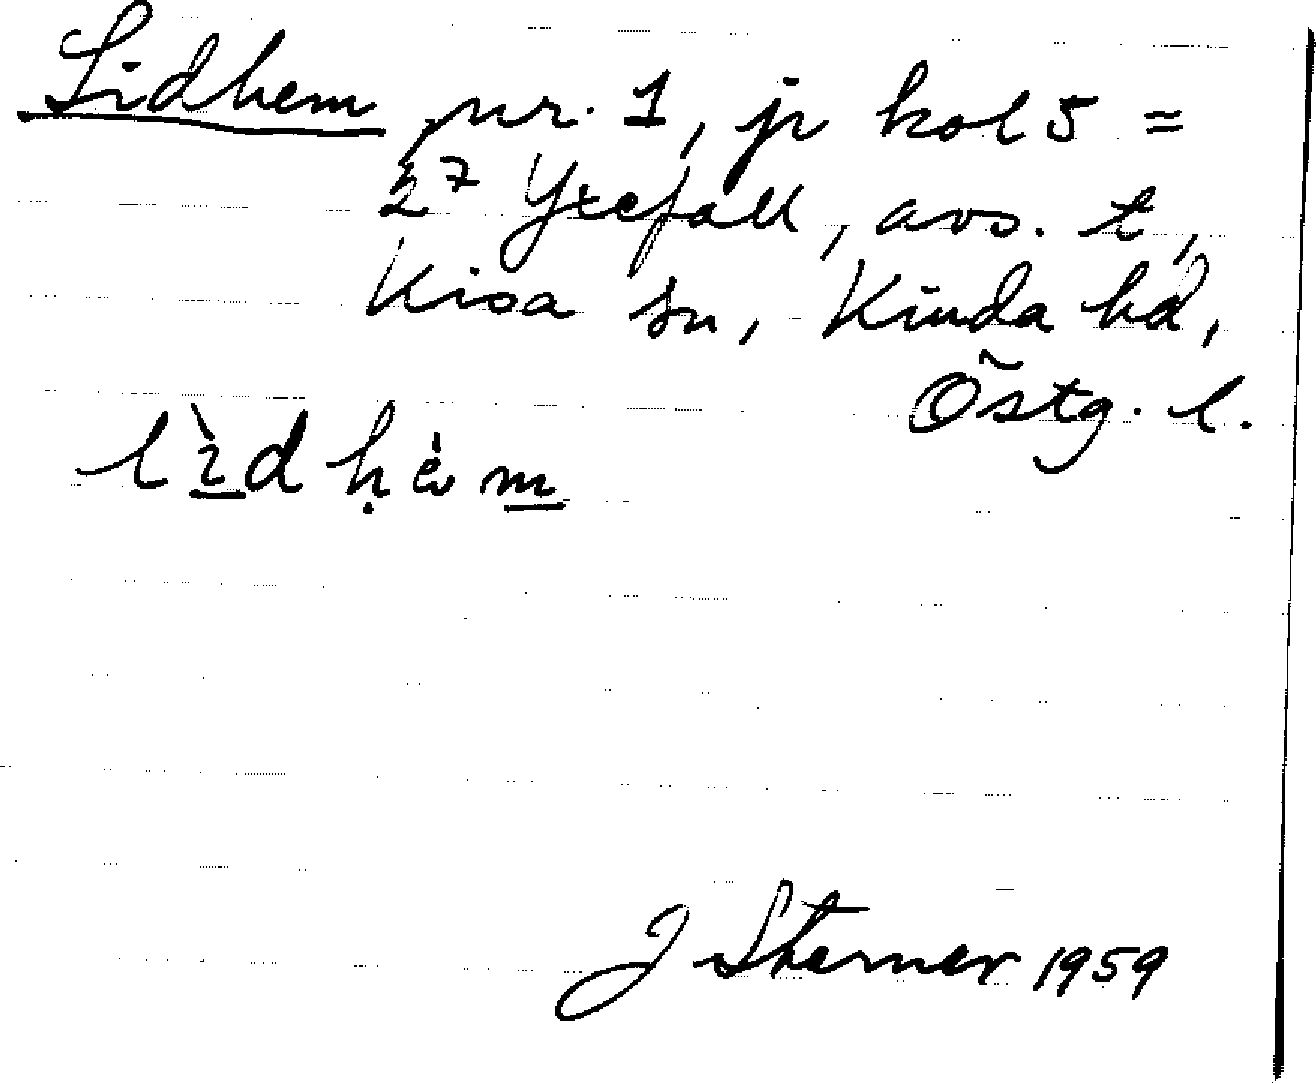 Lidhem nr. 1, jr kol 5 =
2⁷ Yxefall, avs. t,
Kisa sn, Kinda hd,
Östg. l.
lìdḥèm
J Sterner 1959